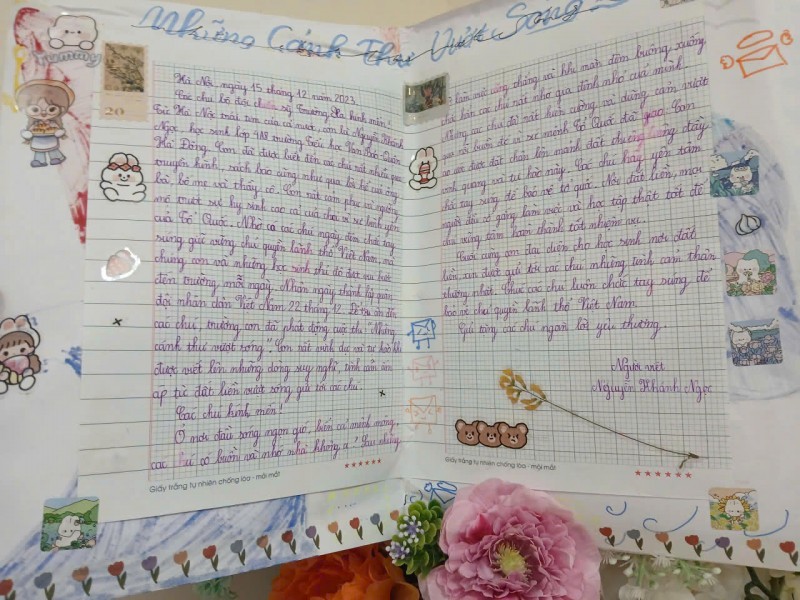 Những Cánh Thư Vượt Sóng
Hà Nội, ngày 15 tháng 12 năm 2023
Các chú bộ đội chiến sỹ Trường Sa kính mến!
Từ Hà Nội trái tim của cả nước, con là Nguyễn Khánh
Ngọc, học sinh lớp 4A8 trường Tiểu học Văn Bảo - Quận
Hà Đông. Con đã được biết đến các chú rất nhiều qua
truyền hình, sách báo cũng như qua lời kể của ông
bà, bố mẹ và thầy cô. Con rất cảm phục và ngưỡng
mộ trước sự hy sinh cao cả của chú vì sự bình yên
của Tổ Quốc. Nhờ có các chú ngày đêm chắc tay
súng giữ vững chủ quyền lãnh thổ Việt Nam mà
chúng con và những học sinh
đến trường mỗi ngày. Nhân ngày thành lập quân
đội nhân dân Việt Nam 22 tháng 12. Để tri ân đến
các chú, trường con đã phát động cuộc thi "Những
cánh thư vượt sóng". Con rất vinh dự và tự hào khi
được viết lên những dòng suy nghĩ, tình cảm ấm
áp từ đất liền vượt sóng gửi tới các chú.
Các chú kính mến!
Ở nơi đầu sóng ngọn gió, biển cả mênh mông,
các chú có buồn và nhớ nhà không ạ? Sau những
Giấy trắng tự nhiên chống lóa - mỏi mắt
căng thẳng và khi màn đêm buông xuống
chắc hẳn các chú rất nhớ gia đình nhỏ của mình.
Nhưng các chú đã rất kiên cường và dũng cảm vượt
qua nỗi buồn đó vì sứ mệnh Tổ Quốc đã giao. Con
ước được đặt chân lên mảnh đất thiêng liêng đầy
vinh quang và tự hào này. Các chú hãy yên tâm
chắc tay súng để bảo vệ tổ quốc. Nơi đất liền, mọi
người luôn cố gắng làm việc và học tập thật tốt để
chú vững tâm hoàn thành tốt nhiệm vụ.
Cuối cùng con đại diện cho học sinh nơi đất
liền xin được gửi tới các chú những tình cảm thân
thương nhất. Chúc các chú luôn chắc tay súng để
bảo vệ chủ quyền lãnh thổ Việt Nam.
Gửi tặng các chú ngàn lời yêu thương.
Người viết
Nguyễn Khánh Ngọc
Giấy trắng tự nhiên chống lóa - mỏi mắt